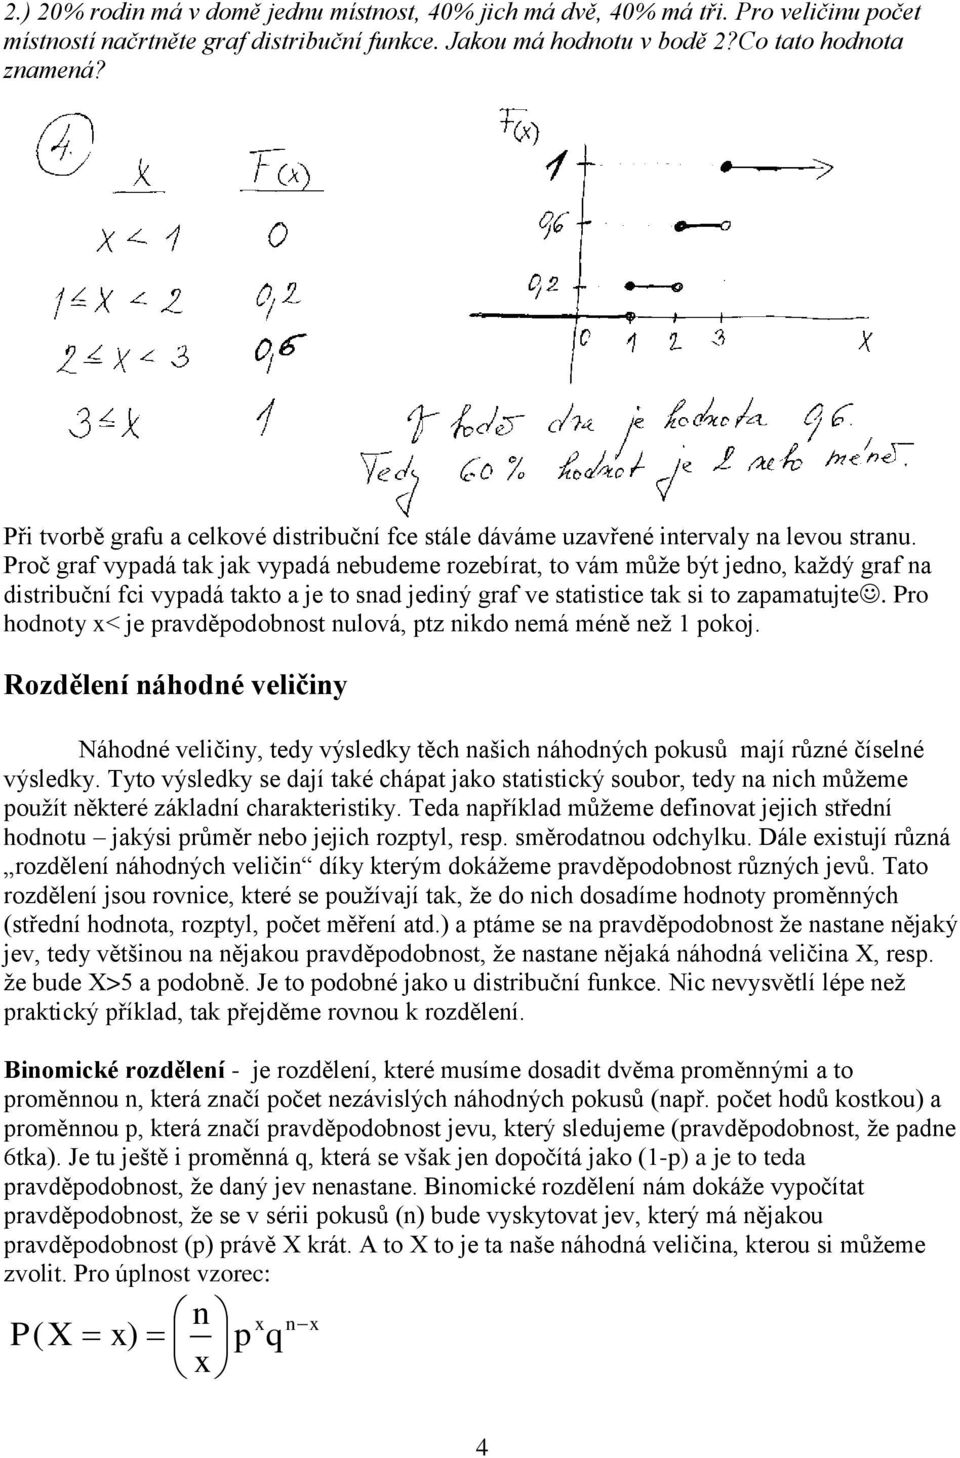 2.) 20% rodin má v domě jednu místnost, 40% jich má dvě, 40% má tři. Pro veličinu počet
místností načrtněte graf distribuční funkce. Jakou má hodnotu v bodě 2?Co tato hodnota
znamená?
4. X F(x)
x < 1 0
1 ≤ X < 2 0,2
2 ≤ X < 3 0,6
3 ≤ X 1
F(x)
1
0,6
0,2
0 1 2 3 X
V bodě dva je hodnota 0,6.
Tedy 60% hodnot je 2 nebo méně.
Při tvorbě grafu a celkové distribuční fce stále dáváme uzavřené intervaly na levou stranu.
Proč graf vypadá tak jak vypadá nebudeme rozebírat, to vám může být jedno, každý graf na
distribuční fci vypadá takto a je to snad jediný graf ve statistice tak si to zapamatujte☺. Pro
hodnoty x< je pravděpodobnost nulová, ptz nikdo nemá méně než 1 pokoj.
Rozdělení náhodné veličiny
Náhodné veličiny, tedy výsledky těch našich náhodných pokusů mají různé číselné
výsledky. Tyto výsledky se dají také chápat jako statistický soubor, tedy na nich můžeme
použít některé základní charakteristiky. Teda například můžeme definovat jejich střední
hodnotu – jakýsi průměr nebo jejich rozptyl, resp. směrodatnou odchylku. Dále existují různá
„rozdělení náhodných veličin“ díky kterým dokážeme pravděpodobnost různých jevů. Tato
rozdělení jsou rovnice, které se používají tak, že do nich dosadíme hodnoty proměnných
(střední hodnota, rozptyl, počet měření atd.) a ptáme se na pravděpodobnost že nastane nějaký
jev, tedy většinou na nějakou pravděpodobnost, že nastane nějaká náhodná veličina X, resp.
že bude X>5 a podobně. Je to podobné jako u distribuční funkce. Nic nevysvětlí lépe než
praktický příklad, tak přejděme rovnou k rozdělení.
Binomické rozdělení - je rozdělení, které musíme dosadit dvěma proměnnými a to
proměnnou n, která značí počet nezávislých náhodných pokusů (např. počet hodů kostkou) a
proměnnou p, která značí pravděpodobnost jevu, který sledujeme (pravděpodobnost, že padne
6tka). Je tu ještě i proměnná q, která se však jen dopočítá jako (1-p) a je to teda
pravděpodobnost, že daný jev nenastane. Binomické rozdělení nám dokáže vypočítat
pravděpodobnost, že se v sérii pokusů (n) bude vyskytovat jev, který má nějakou
pravděpodobnost (p) právě X krát. A to X to je ta naše náhodná veličina, kterou si můžeme
zvolit. Pro úplnost vzorec:
P(X = x) = (n / x) p^x q^(n−x)
4